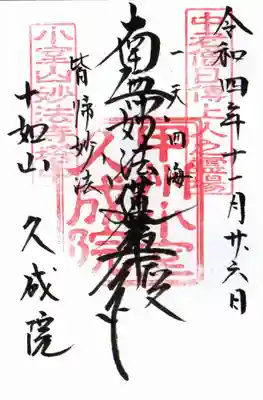 令和四年十一月廿六日
中老僧日傳上人之霊場
一天四海
南無妙法蓮華経
甲州小室
久成院
皆帰妙法
小室山妙法寺
十如山
久成院